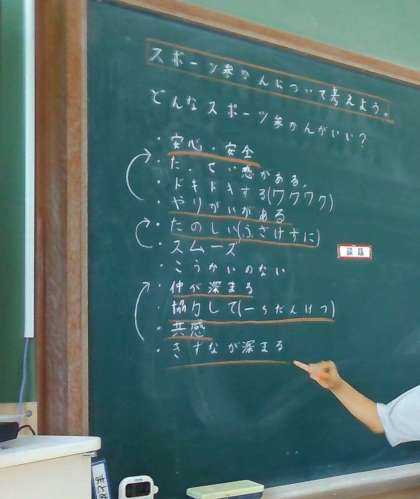 スポーツ参かんについて考えよう。
どんなスポーツ参かんがいい？
・安心・安全
・たっせい感がある。
・ドキドキする(ワクワク)
・やりがいがある
・たのしい(うざけすに)
・スムーズ
・こうかいのない
・仲が深まる
・協力して(一ちだんけつ)
・共感
・きずなが深まる
課題
まとめ